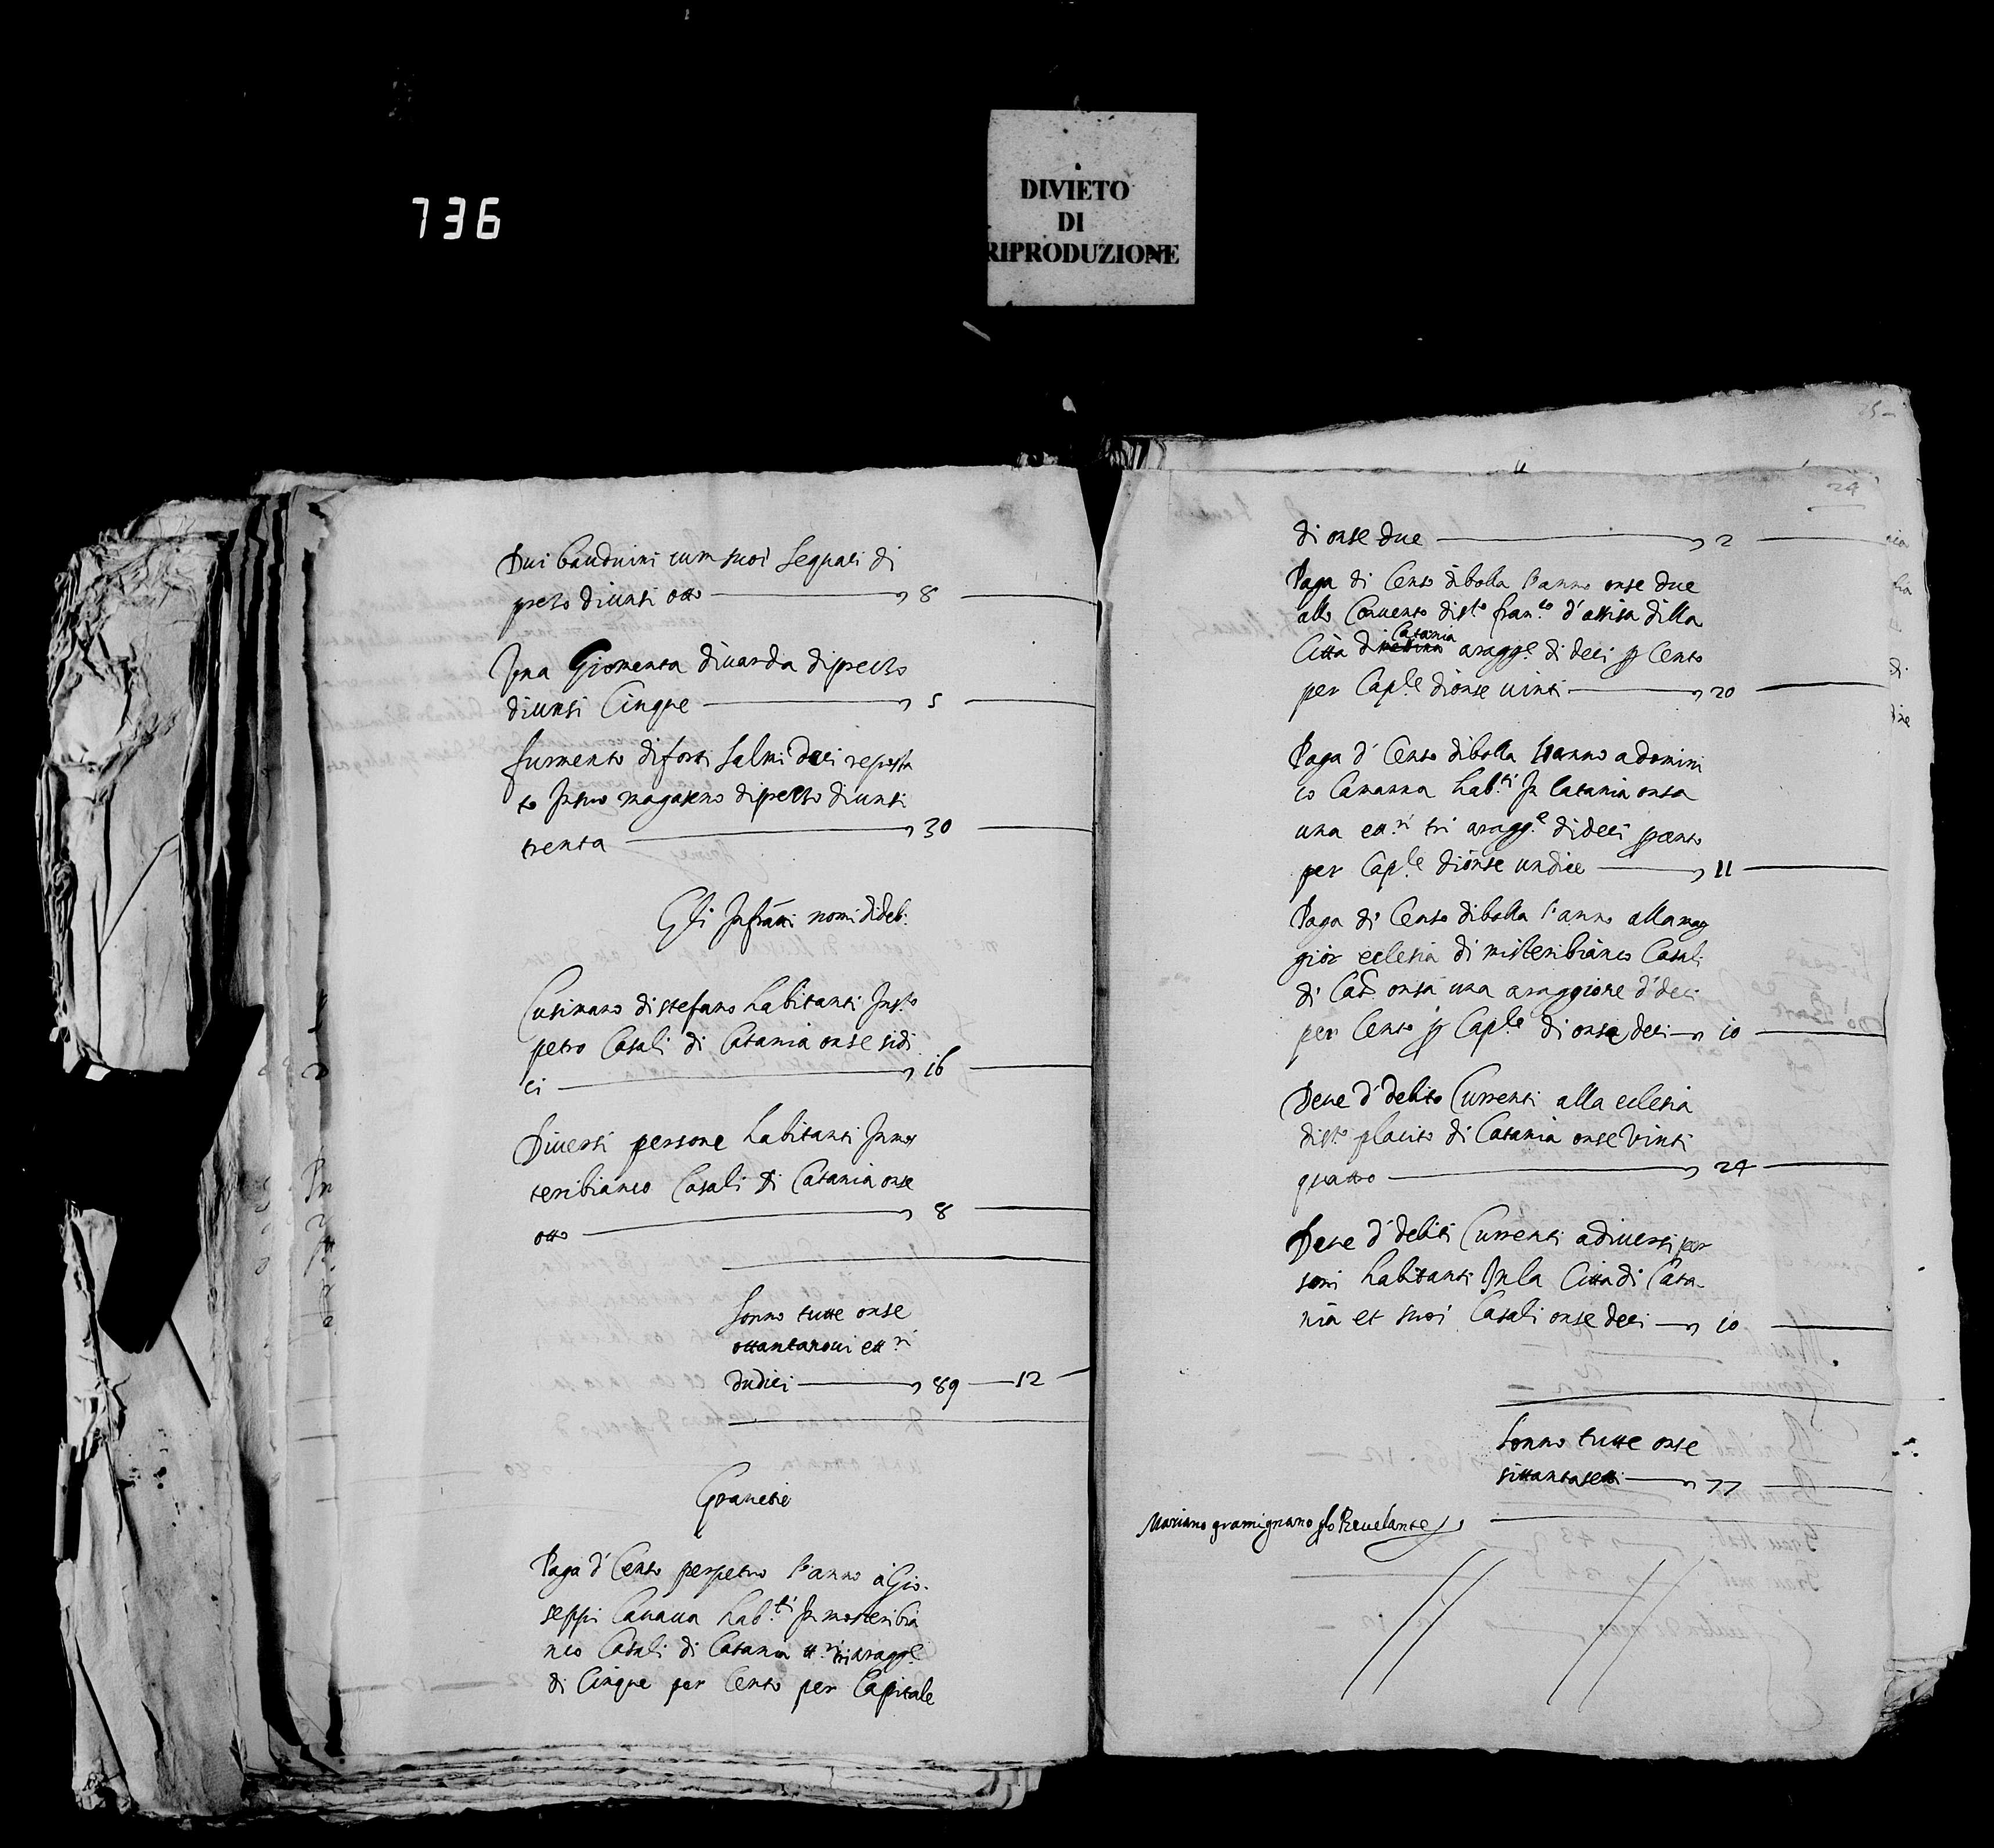 736
DIVIETO
DI
RIPRODUZIONE
Dui bauduini cum suoi sequati di
preto diunsi otto 8
Jna Giomenta diuarda diprecto
diunsi Cinque 5
furmento diforti salmi deci reposta
to Jnsuo magaseno diprecto diunsi
trenta 30
Gli Jnfrãtti nomi dideb.
Cusimano distefano habitanti Jnsto
petro Casali di Catania onse sidi
ci 16
Diuersi persone habitanti Jnmos
teribianco Casali di Catania onse
otto 8
Sonno tutte onse
ottantanoui ett.ri
dudici 89 12
Grauetie
Paga d' Censo perpetuo l'anno à Gio.
seppi Cauaua hab.ti Jn mosteribia
nco Casali di Catania tt.ri tri aragg.e
di Cinque per Cento per Capitale
25
24
di onse due 2
Paga di Censo dibolla l'anno onse due
allo Conuento disto fran.co d'assisa dilla
Catania
Citta di aragg.e di deci p Cento
per Cap.le dionse uinti 20
Paga d' Censo dibolla l'anno adomini
co Camarra hab.ti Jn Catania onsa
una ett.ri tri aragg.e dideci p cento
per Cap.le dionse undice 11
Paga di Censo dibolla l'anno allamag
gior eclesia di misteribianco Casali
di Cat.a onsa una araggione d' deci
per Cento p Cap.le di onse deci 10
Deue d' debito Currenti alla eclesia
disto placito di Catania onse Vinti
quattro 24
Deue d' debiti Currenti adiuersi per
soni habitanti Jnla Citta di Cata-
nia et suoi Casali onse deci 10
Sonno tutte onse
sittantasetti 77
Mariano gramignano Reuelante